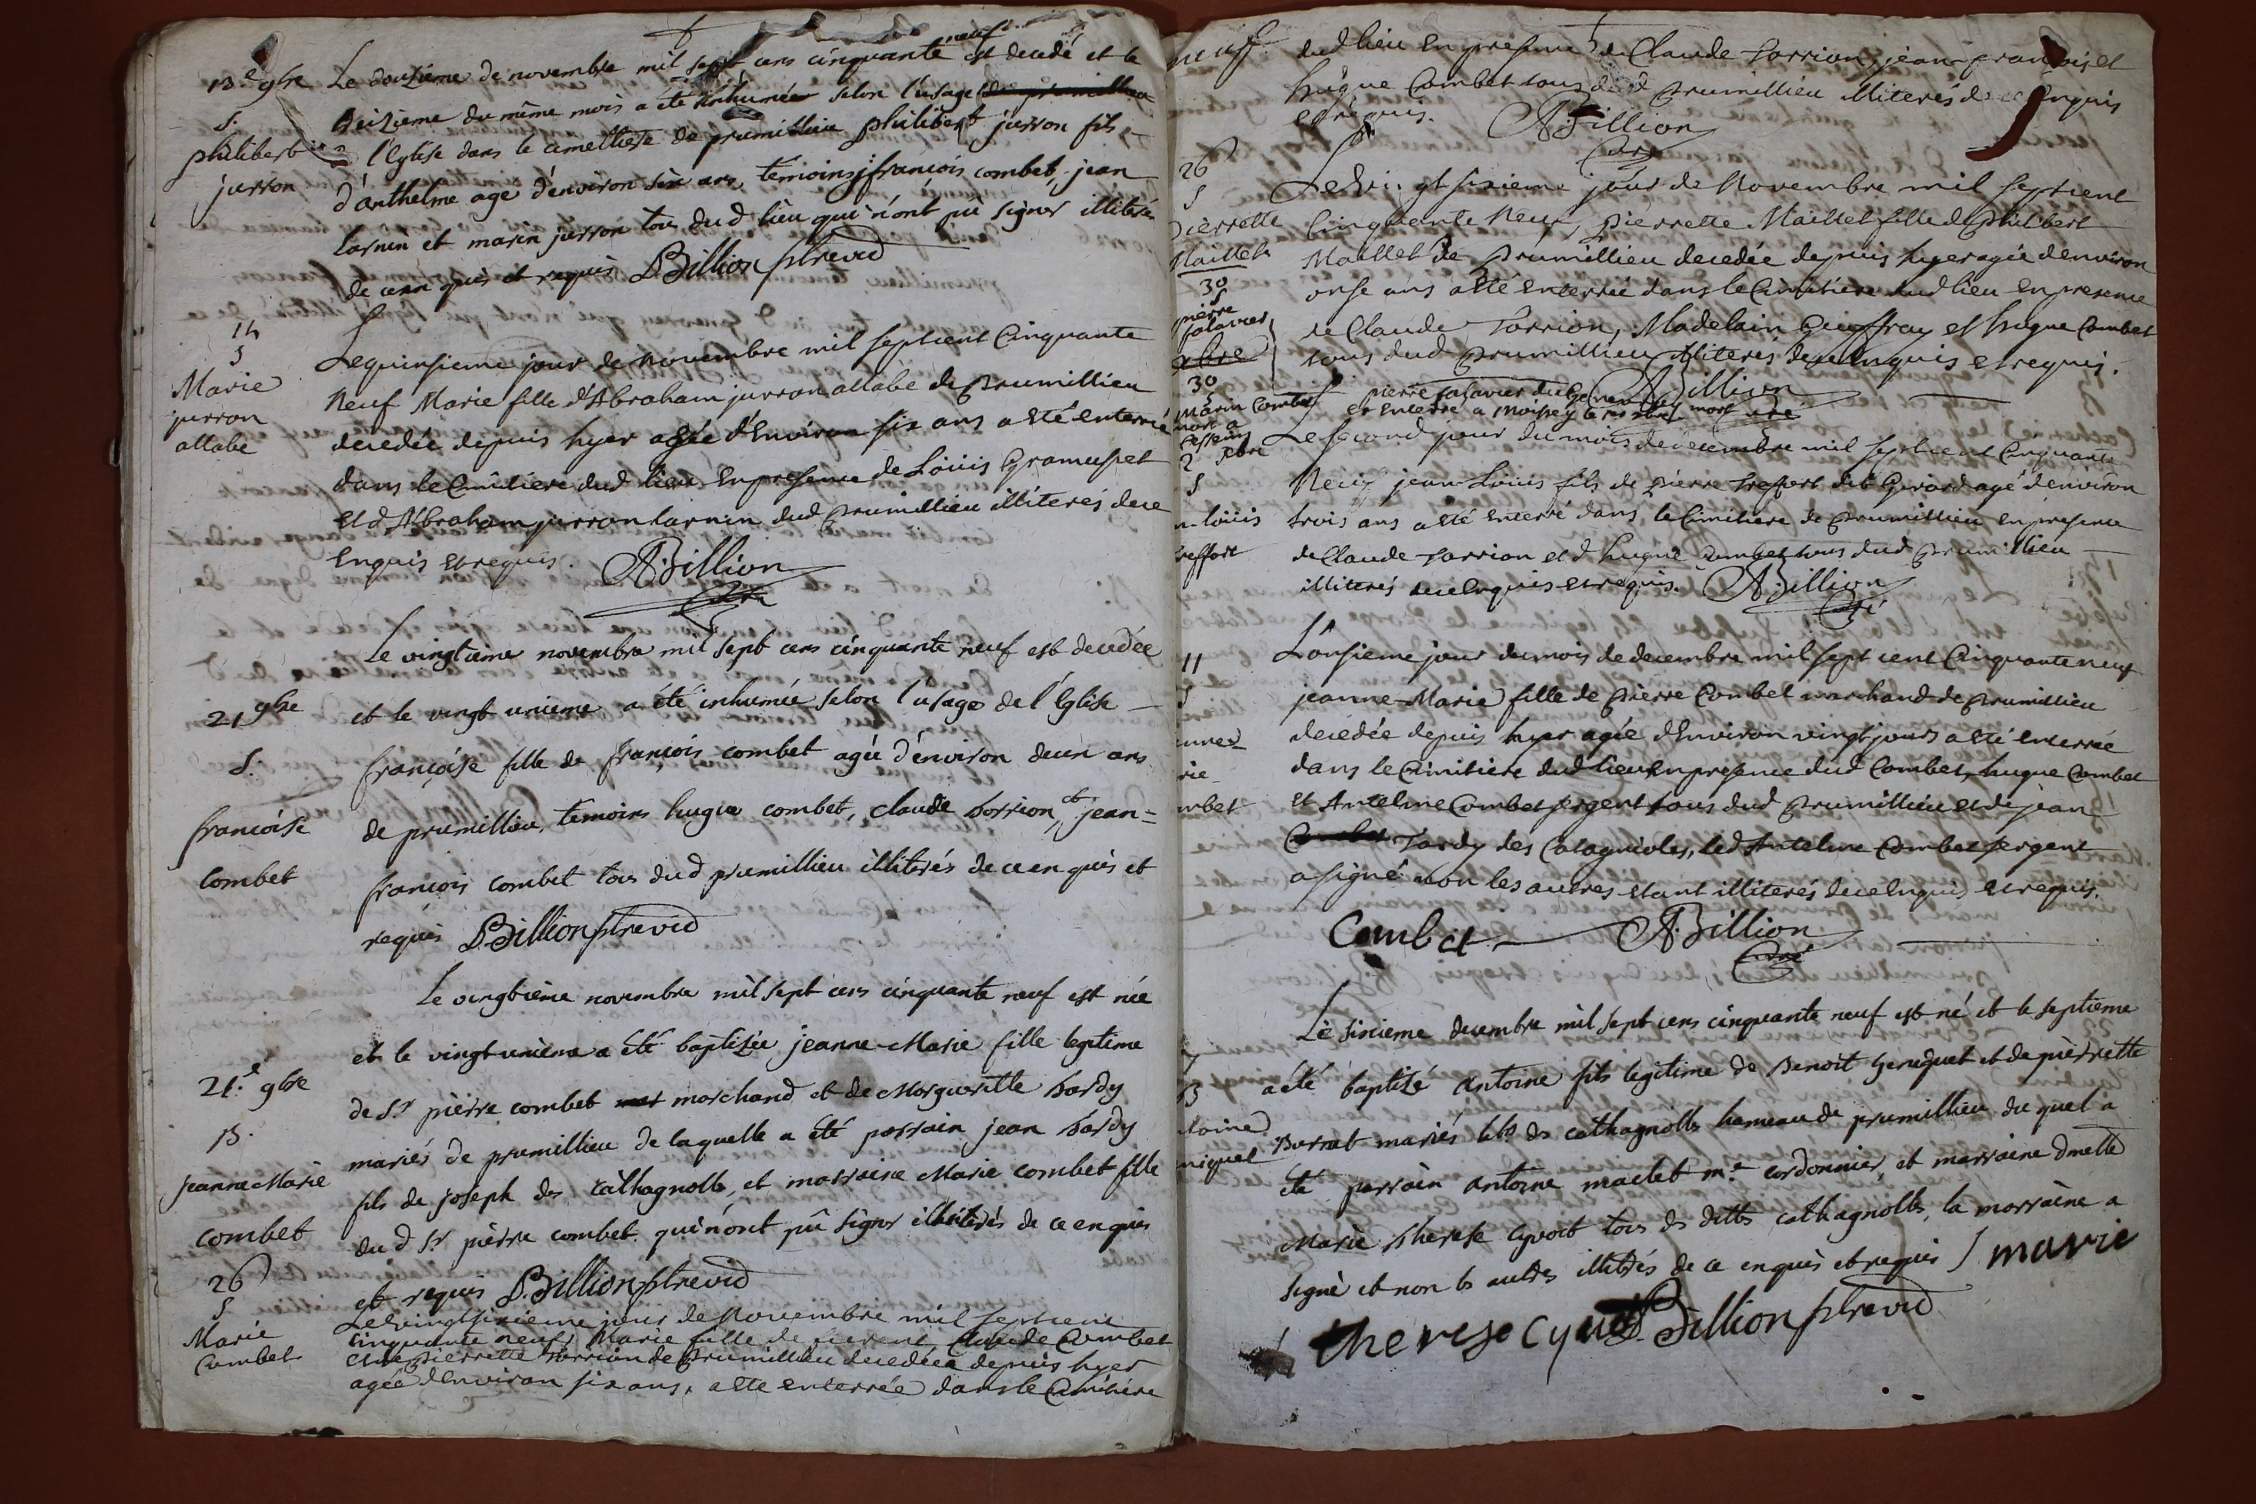 13.e 9bre
S.
philibert
jurron
Le douzieme de novembre mil sept cens cinquante neuf est decedé et le
treizieme du même mois a été inhumé selon l'usage de
l'Eglise dans le cimettiere de prumillieu philibert jurron fils
d'anthelme agé d'environ six ans, temoins françois combet, jean
larnin et marin jurron tous dud lieu qui n'ont pû signer illiterés
de ce en quis et requis Billion ptre vic
S
Marie
jurron
allabe
Le quinsieme jour de Novembre mil sept cent Cinquante
Neuf Marie fille d'Abraham jurron allabe de Prumillieu
decedée depuis hyer agée d'Environ six ans a été enterrée
dans le Cimitiere dud lieu En presence de Loüis Gramuset
et d'Abraham jurron larnin dud Prumillieu illiterés de ce
Enquis et requis. A Billion
Curé
21 9bre
S.
françoise
combet
Le vingtieme novembre mil sept cens cinquante neuf est decedée
et le vingt unieme a été inhumée selon l'usage de l'Eglise
françoise fille de françois combet agée d'environ deux ans
de prumillieu, temoins hugue combet, claude torrion, et jean=
françois combet tous dud prumillieu illiterés de ce en quis et
requis Billion ptre vic
21.e 9bre
B.
Jeanne Marie
combet
Le vingtieme novembre mil sept cens cinquante neuf est née
et le vingt unieme a été baptizée jeanne-Marie fille legitime
de Sr pierre combet marchand et de Marguerite tardy
mariés de prumillieu de laquelle a été parrain jean tardy
fils de joseph des cathagnolles, et marraine Marie combet fille
dud Sr pierre combet qui n'ont pû signer illiterés de ce enquis
et requis Billion ptre vic
26
S
Marie
Combet
Le vingt sixieme jour de Novembre mil sept cent
cinquante neuf, Marie fille de Claude Combet
et de Pierrette torrion de Prumillieu decedée depuis hyer
agée d'Environ six ans, a été enterrée dans le Cimitiére
dud lieu En presence de Claude torrion, jean-françois et
hugue Combet tous dud Prumillieu illiterés de ce Enquis
et requis. A Billion
Curé
26
S
Pierrette
Maillet
Le vingt sixieme jour de Novembre mil sept cent
Cinquante Neuf, Pierrette Maillet fille de Philibert
Maillet de Prumillieu decedée depuis hyer agée d'environ
onse ans a été enterrée dans le Cimitiere dud lieu En presence
de Claude torrion, Madelain Geuffray et hugue Combet
tous dud Prumillieu illiterés de ce Enquis et requis.
A Billion
Curé
30
S
pierre
salavier
30
Marin Combet
mort a
pierre salavier du
et Enterré a Moissey le mort
2 Xbre
S
loüis
treffort
Le second jour du mois de decembre mil sept cent Cinquante
Neuf jean-Loüis fils de Pierre treffort dit Girard agé d'environ
trois ans a été enterré dans le Cimitiere de Prumillieu En presence
de Claude torrion et d'hugue Combet tous dud Prumillieu
illiterés de ce Enquis et requis. A Billion
Curé
11
S
L'onsieme jour du mois de decembre mil sept cent Cinquante neuf
jeanne-Marie fille de Pierre Combet marchand de Prumillieu
decedée depuis hyer agée d'Environ vingt jours a été enterrée
dans le Cimitiere dud lieu En presence dud Combet, hugue Combet
et Antelme Combet sergent tous dud Prumillieu et de jean
tardy des Catagnioles, led Antelme Combet sergent
a signé non les autres etant illiterés de ce Enquis et requis.
Combet A Billion
Curé
7
B
Le sixieme decembre mil sept cens cinquante neuf est né et le septieme
a été baptizé antoine fils legitime de Benoit et de pierrette
Burnet mariés des cathagnolles hameau de prumillieu du quel a
été parrain antoine maclet me cordonnier, et marraine dmelle
Marie therese Cyvoct tous des dittes cathagnolles, la marraine a
signé et non les autres illiterés de ce enquis et requis marie
therese Cyvoct Billion ptre vic